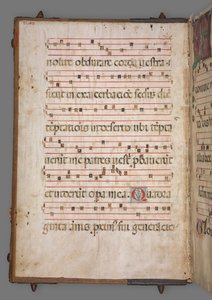 nolite obdurare corda vestra
sicut in exacerbacioe scdus die
temptacionis in deserto ubi tepta
verut me patres vestri pbaverut
et viderut opa mea. Quadra
ginta anis proxim fui generacioi